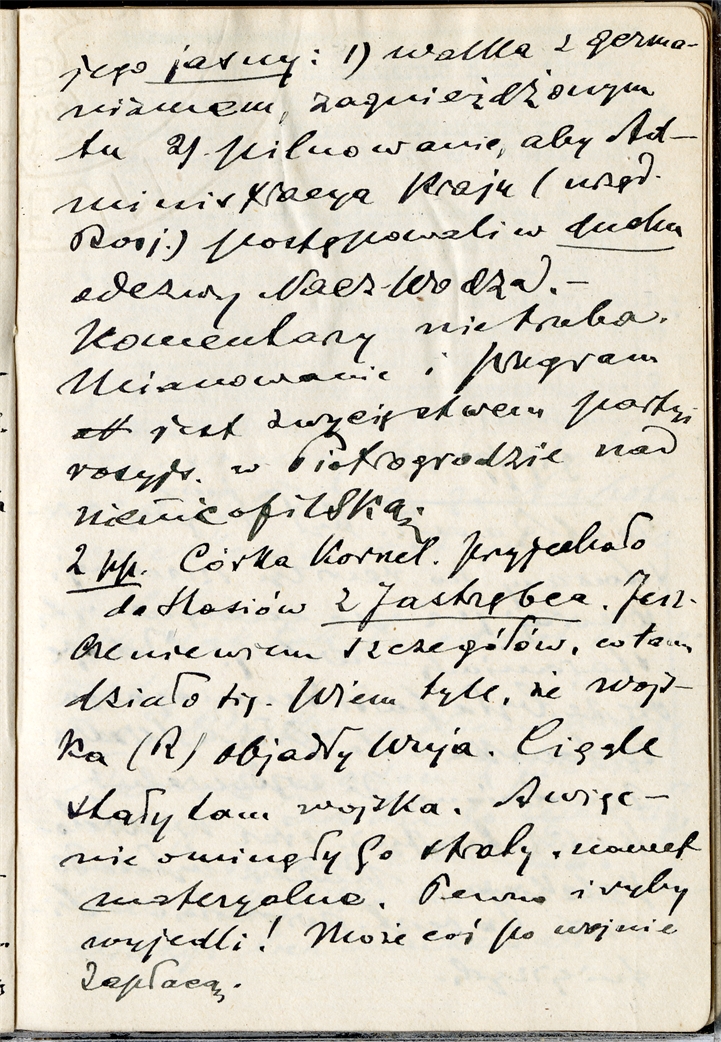 jego jasny: 1) walka z germa-
nizmem, zagnieżdżonym
tu 2) pilnowanie, aby Ad-
ministracya Kraju (urzęd.
Rosj.) postępowali w duchu
odezwy Nacz. Wodza. –
Komentarzy nie trzeba.
Mianowanie i program
jest zwycięstwem partyi
rosyjs. w Piotrogrodzie nad
niemcofilską.
2 pp. Córka Kornel. przyjechało
do Stasiów z Jastrzębca. Jesz-
cze nie wiem szczegółów, co tam
działo się. Wiem tyle, że wojs-
ka (R) objadły wuja. Ciągle
stały tam wojska. A więc –
nie ominęły Go straty, nawet
materyalne. Pewno i ryby
wyjedli! Może coś po wojnie
zapłacą.